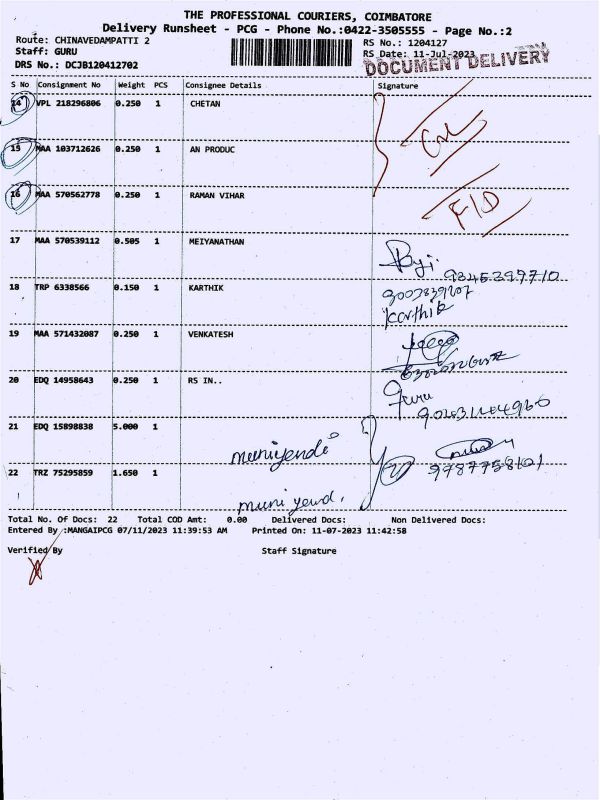 THE PROFESSIONAL COURIERS, COIMBATORE
Delivery Runsheet - PCG - Phone No.:0422-3505555 - Page No.:2
Route: CHINAVEDAMPATTI 2
RS No.: 1204127
Staff: GURU
RS Date: 11-Jul-2023
DRS No.: DCJB120412702
DOCUMENT DELIVERY
S No Consignment No Weight PCS Consignee Details Signature
14 VPL 218296806 0.250 1 CHETAN
15 MAA 103712626 0.250 1 AN PRODUC
16 MAA 570562778 0.250 1 RAMAN VIHAR
F/D
17 MAA 570539112 0.505 1 MEIYANATHAN
9345397710
18 TRP 6338566 0.150 1 KARTHIK
Karthik
19 MAA 571432087 0.250 1 VENKATESH
20 EDQ 14958643 0.250 1 RS IN..
Guru
21 EDQ 15898838 5.000 1
muniyendi
9787758101
22 TRZ 75295859 1.650 1
muni yend.
Total No. Of Docs: 22 Total COD Amt: 0.00 Delivered Docs: Non Delivered Docs:
Entered By :MANGAIPCG 07/11/2023 11:39:53 AM Printed On: 11-07-2023 11:42:58
Verified By Staff Signature